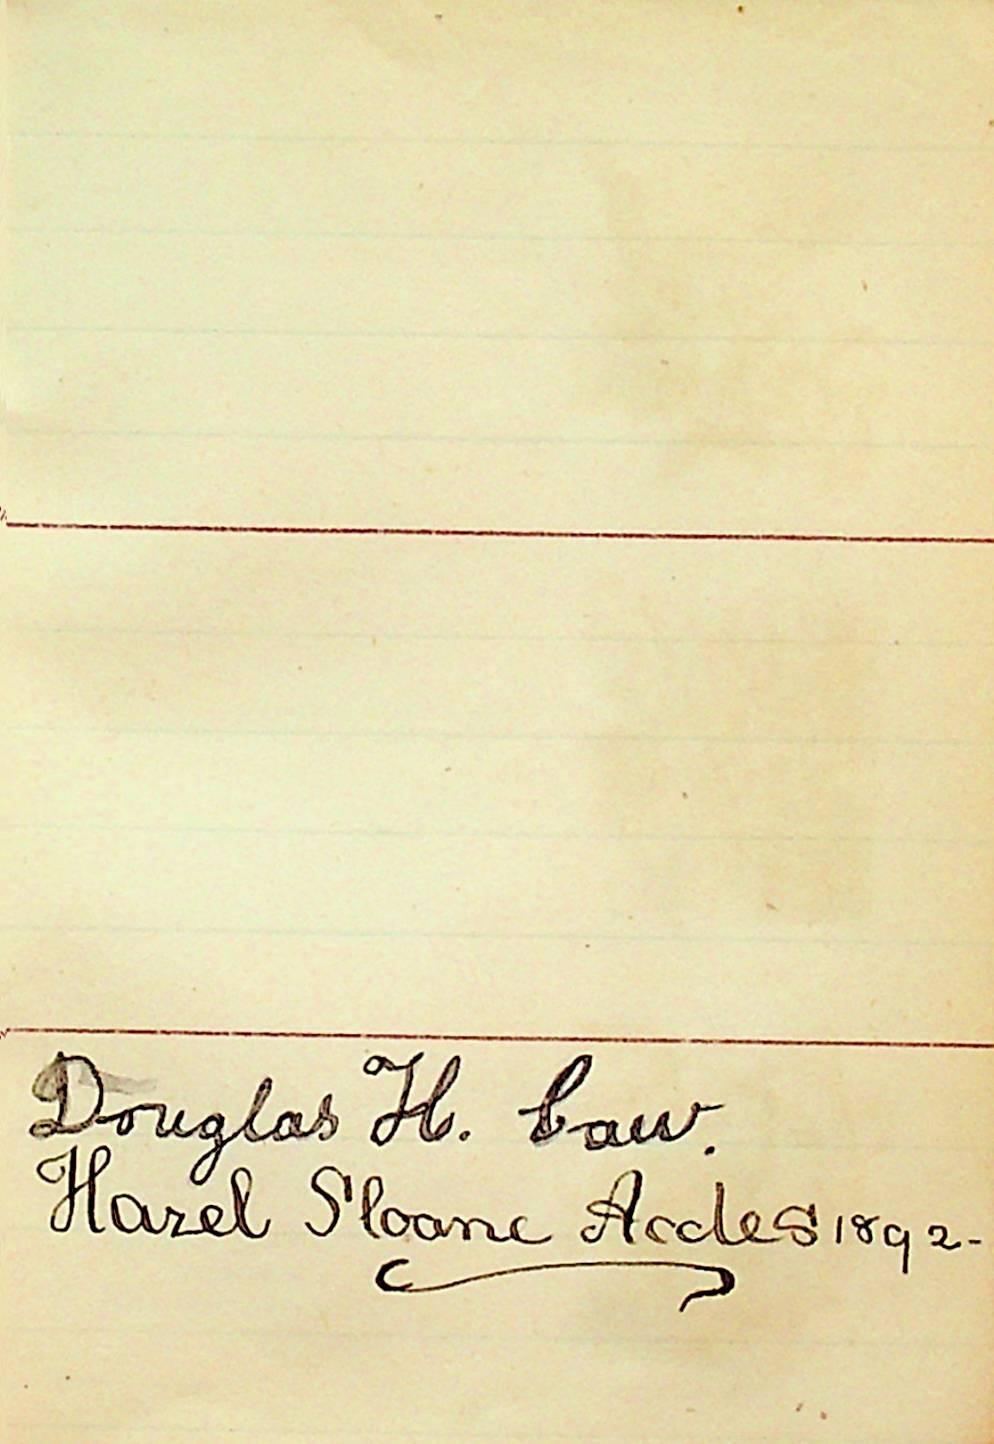 Douglas H. Caw.
Hazel Sloane Ardes 1892-